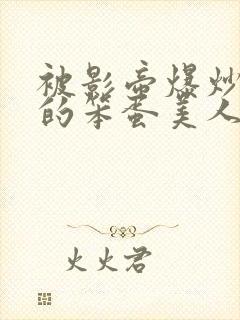 被影帝爆炒
的笨蛋美人
火火君